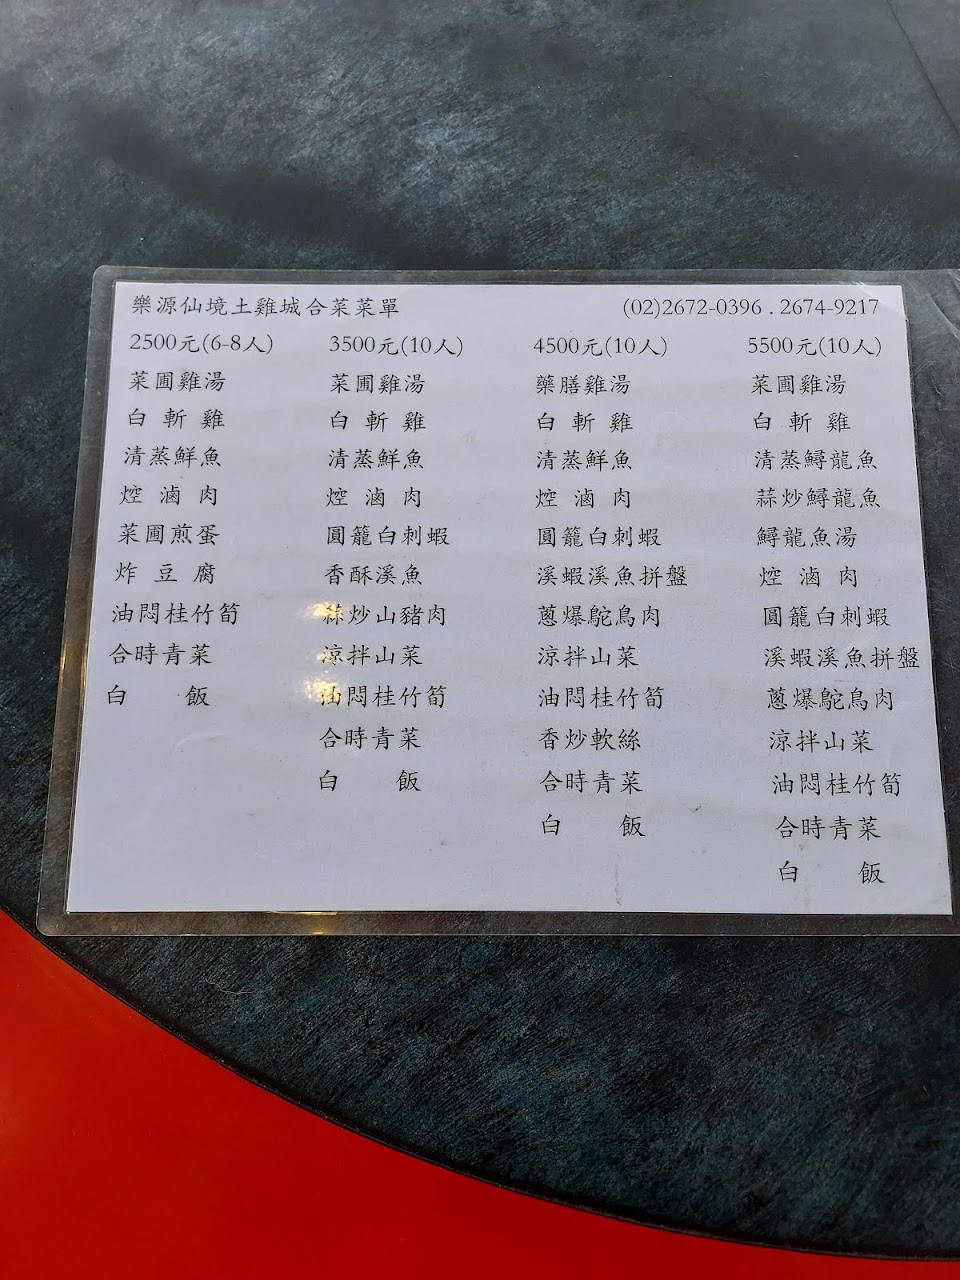 樂源仙境土雞城合菜菜單 (02)2672-0396 . 2674-9217
2500元(6-8人) 3500元(10人) 4500元(10人) 5500元(10人)
菜圃雞湯 菜圃雞湯 藥膳雞湯 菜圃雞湯
白斬雞 白斬雞 白斬雞 白斬雞
清蒸鮮魚 清蒸鮮魚 清蒸鮮魚 清蒸鱘龍魚
焢滷肉 焢滷肉 焢滷肉 蒜炒鱘龍魚
菜圃煎蛋 圓籠白刺蝦 圓籠白刺蝦 鱘龍魚湯
炸豆腐 香酥溪魚 溪蝦溪魚拼盤 焢滷肉
油悶桂竹筍 蒜炒山豬肉 蔥爆鴕鳥肉 圓籠白刺蝦
合時青菜 涼拌山菜 涼拌山菜 溪蝦溪魚拼盤
白飯 油悶桂竹筍 油悶桂竹筍 蔥爆鴕鳥肉
合時青菜 香炒軟絲 涼拌山菜
白飯 合時青菜 油悶桂竹筍
白飯 合時青菜
白飯